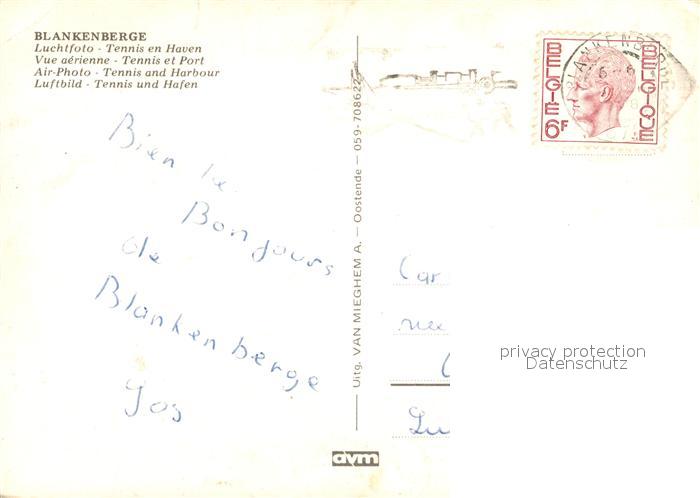 BLANKENBERGE
Luchtfoto - Tennis en Haven
Vue aérienne - Tennis et Port
Air-Photo - Tennis and Harbour
Luftbild - Tennis und Hafen
BLANKENBERGE
BELGIË 6F
BELGIQUE
Bien le
Bonjours
de
Blankenberge
Jos
Uitg. VAN MIEGHEM A. — Oostende - 059-708622
Car
rue
privacy protection
Datenschutz
dvm